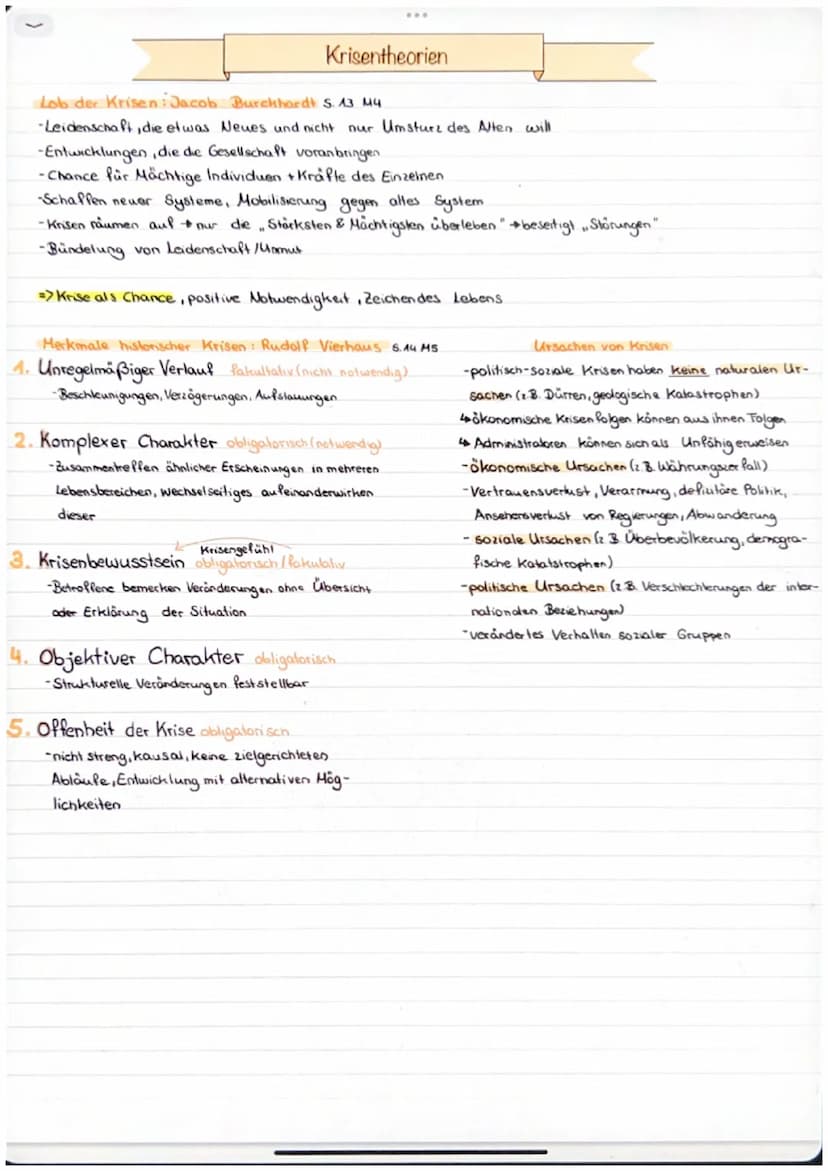 Krisentheorien
Lob der Krisen: Jacob Burckhardt S. 13 M4
-Leidenschaft, die etwas Neues und nicht nur Umsturz des Alten will
-Entwicklungen, die die Gesellschaft voranbringen
-Chance für Mächtige Individuen + Kräfte des Einzelnen
-Schaffen neuer Systeme, Mobilisierung gegen altes System
-Krisen räumen auf → nur die „Stärksten & Mächtigsten überleben" → beseitigt „Störungen"
-Bündelung von Leidenschaft / Unmut
=> Krise als Chance, positive Notwendigkeit, Zeichen des Lebens
Merkmale historischer Krisen: Rudolf Vierhaus S.14 M5
1. Unregelmäßiger Verlauf fakultativ (nicht notwendig)
-Beschleunigungen, Verzögerungen, Aufstauungen
2. Komplexer Charakter obligatorisch (notwendig)
-Zusammentreffen ähnlicher Erscheinungen in mehreren
Lebensbereichen, wechselseitiges aufeinanderwirken
dieser
Krisengefühl
3. Krisenbewusstsein obligatorisch / fakultativ
-Betroffene bemerken Veränderungen ohne Übersicht
oder Erklärung der Situation
4. Objektiver Charakter obligatorisch
-Strukturelle Veränderungen feststellbar
5. Offenheit der Krise obligatorisch
-nicht streng, kausal, keine zielgerichteten
Abläufe, Entwicklung mit alternativen Mög-
lichkeiten
Ursachen von Krisen
-politisch-soziale Krisen haben keine naturalen Ur-
sachen (z.B. Dürren, geologische Katastrophen)
↳ ökonomische Krisenfolgen können aus ihnen Folgen
↳ Administratoren können sich als Unfähig erweisen
-ökonomische Ursachen (z.B. Währungszerfall)
-Vertrauensverlust, Verarmung, defizitäre Politik,
Ansehensverlust von Regierungen, Abwanderung
- soziale Ursachen (z.B Überbevölkerung, demogra-
fische Katatstrophen)
-politische Ursachen (z.B. Verschlechterungen der inter-
nationalen Beziehungen)
-verändertes Verhalten sozialer Gruppen